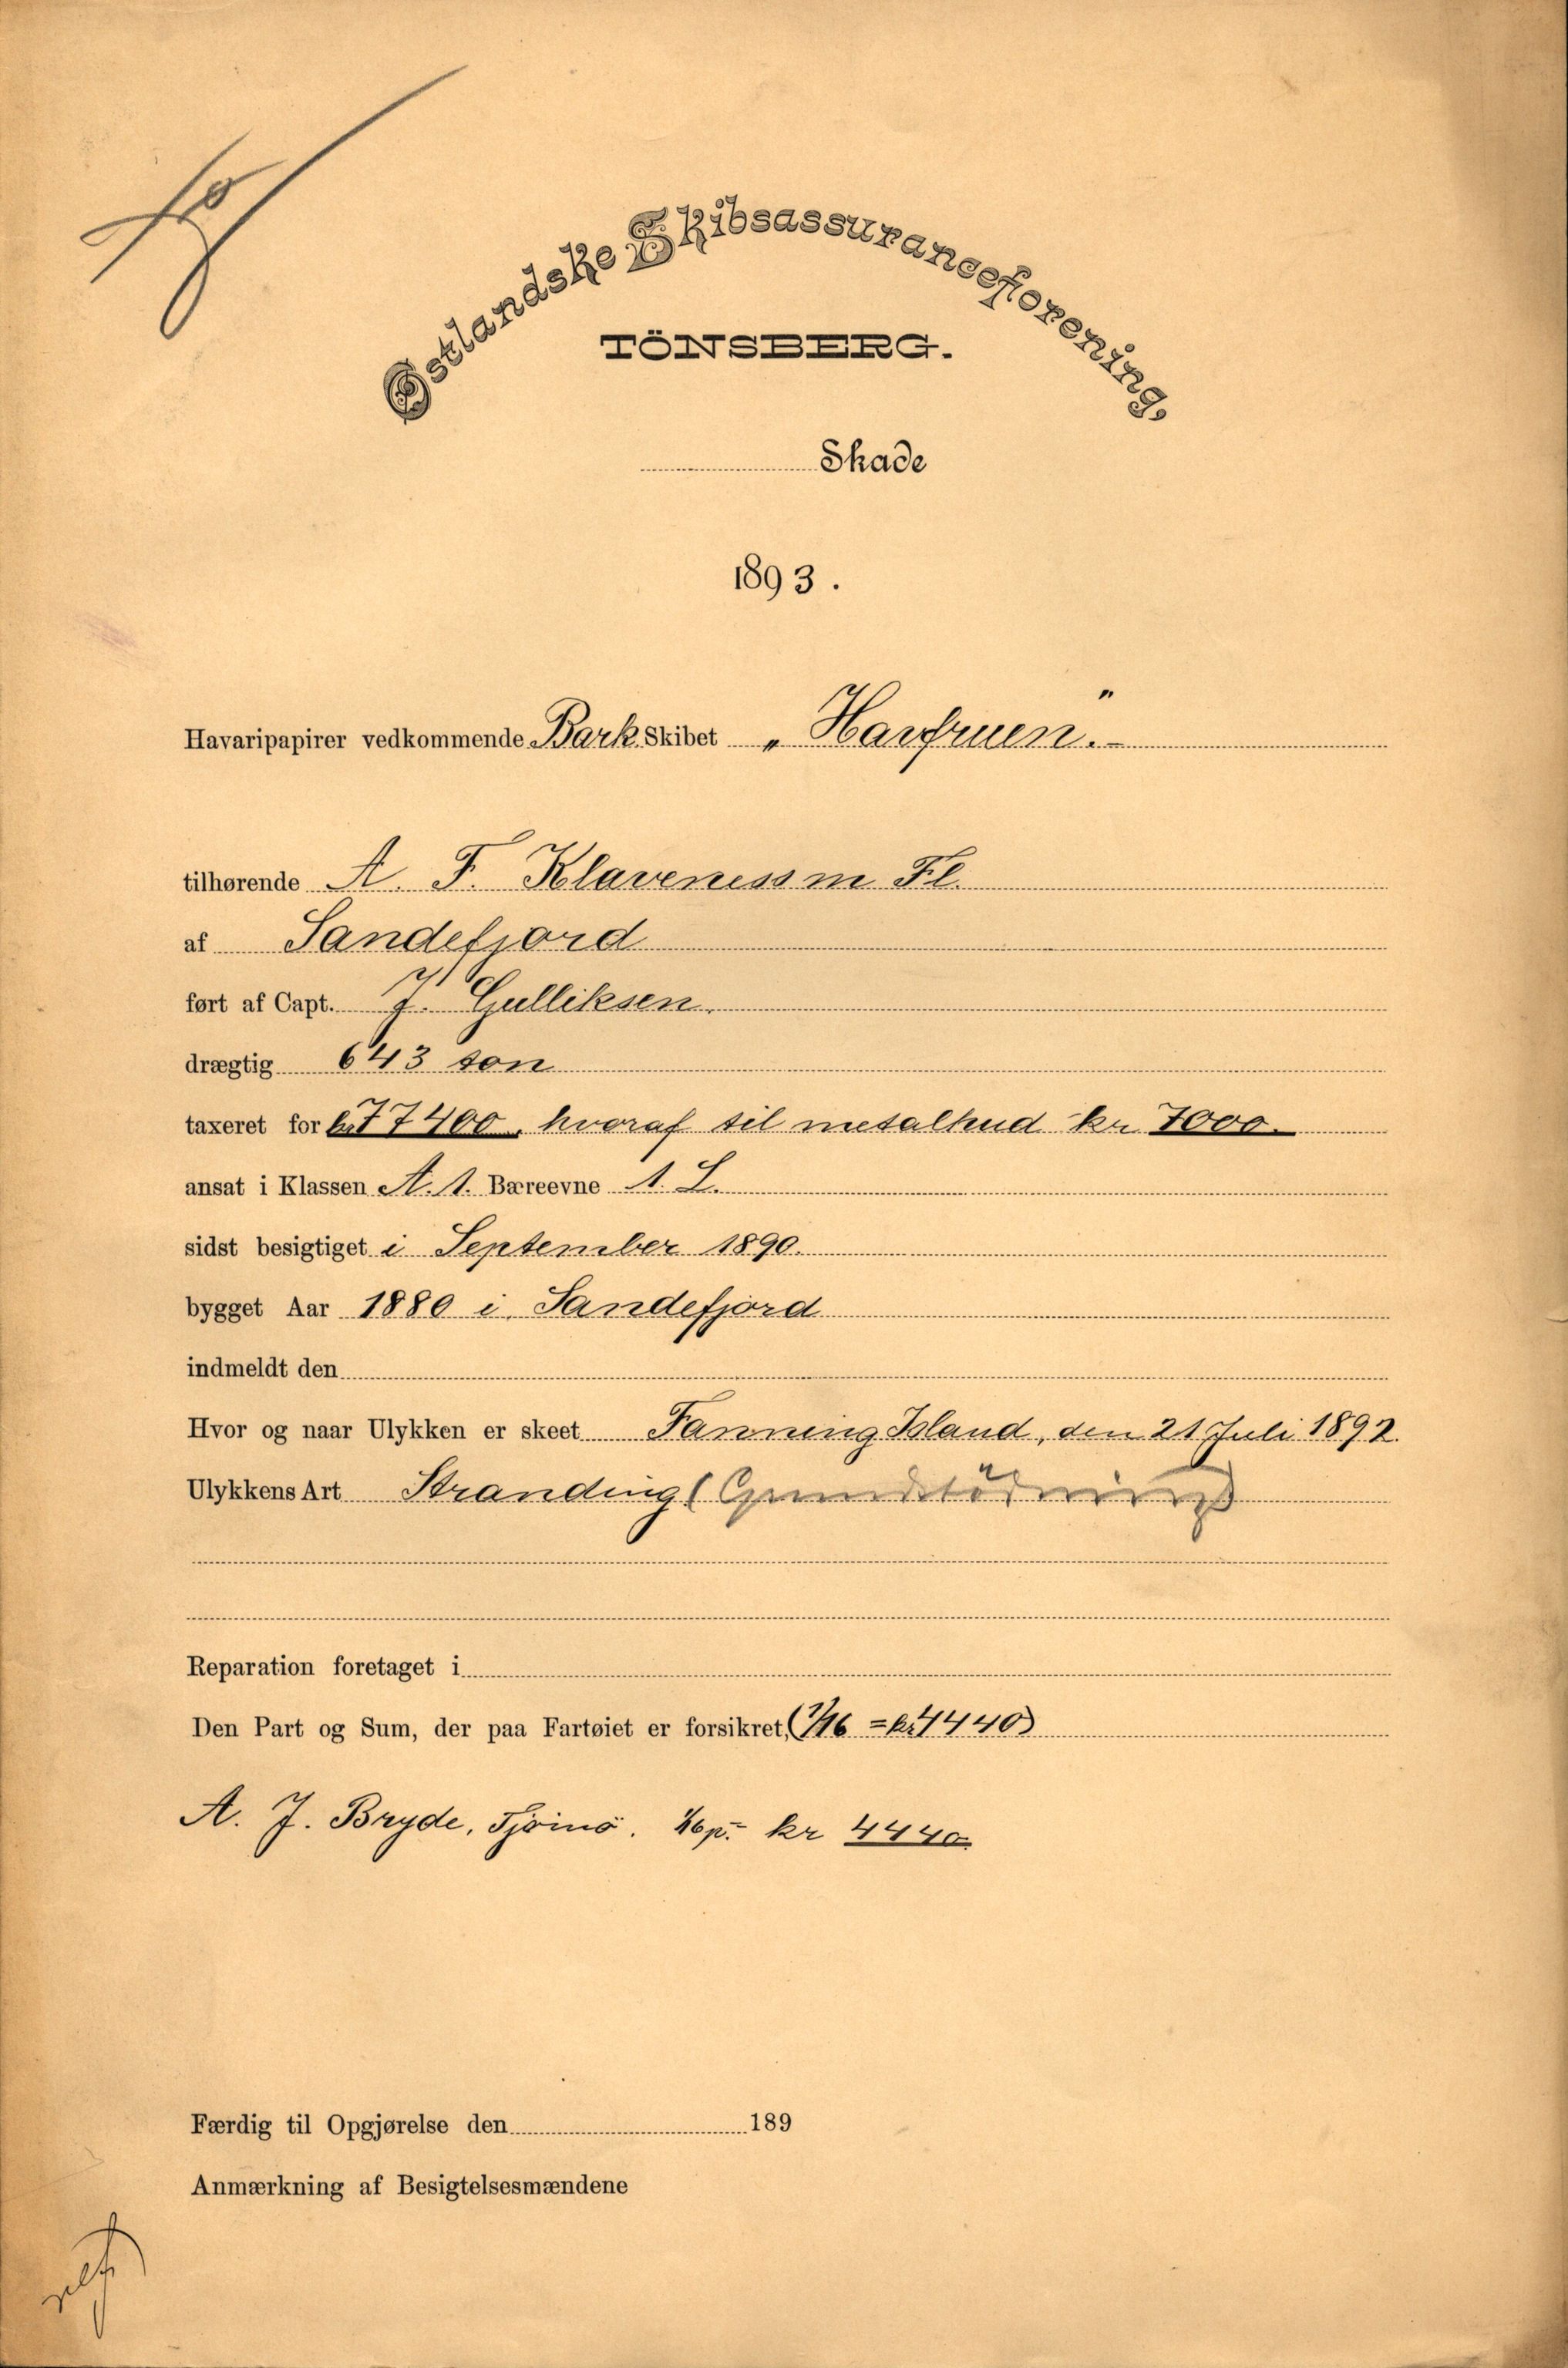 Østlandske Skibsassuranceforening,
TÖNSBERG.
Skade
1893.
Havaripapirer vedkommende Bark Skibet „Havfruen.“
tilhørende A. F. Klaveness m Fl.
af Sandefjord
ført af Capt. J. Gulliksen.
drægtig 643 ton
taxeret for kr 77400, hvoraf til metalhud kr 7000.
ansat i Klassen A. 1. Bæreevne 1. L.
sidst besigtiget i September 1890.
bygget Aar 1880 i Sandefjord
indmeldt den
Hvor og naar Ulykken er skeet Fanning Island, den 21 Juli 1892.
Ulykkens Art Stranding (Grundstödning)
Reparation foretaget i
Den Part og Sum, der paa Fartøiet er forsikret, (1/16 = kr 4440)
A. J. Bryde, Tjömö. 1/16 p. kr 4440
Færdig til Opgjørelse den 189
Anmærkning af Besigtelsesmændene